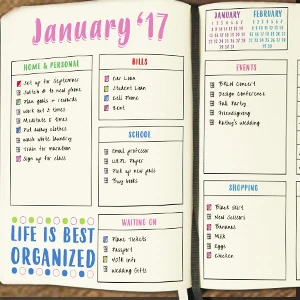 January '17
HOME & PERSONAL
Set up for September
Switch to new phone
Plan goals + rewards
Work out 3 times
Meditate 5 times
Put away clothes
Wash white laundry
Train for marathon
Sign up for class
LIFE IS BEST
ORGANIZED
BILLS
Car Loan
Student Loan
Cell Phone
Rent
SCHOOL
Email professor
Paper
Pick up new
Buy books
WAITING ON
Plane Tickets
Passport
Info
Wedding Gifts
JANUARY
FEBRUARY
EVENTS
Concert
Design Conference
Fall Party
Friendsgiving
Kathy's wedding
SHOPPING
Black Skirt
New Scissors
Bananas
Milk
Eggs
Chicken